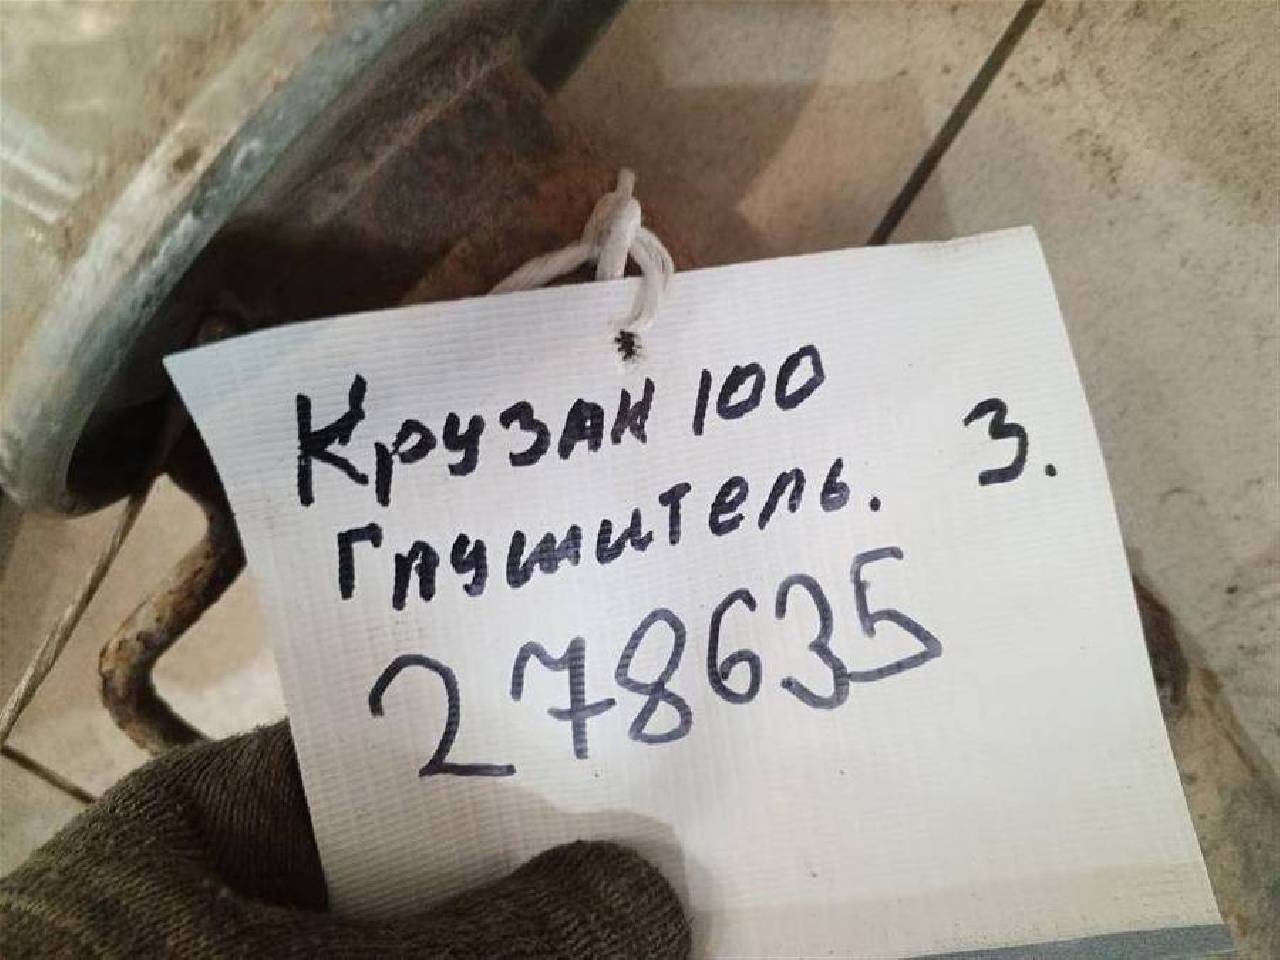 Крузак 100
Глушитель. З.
278635